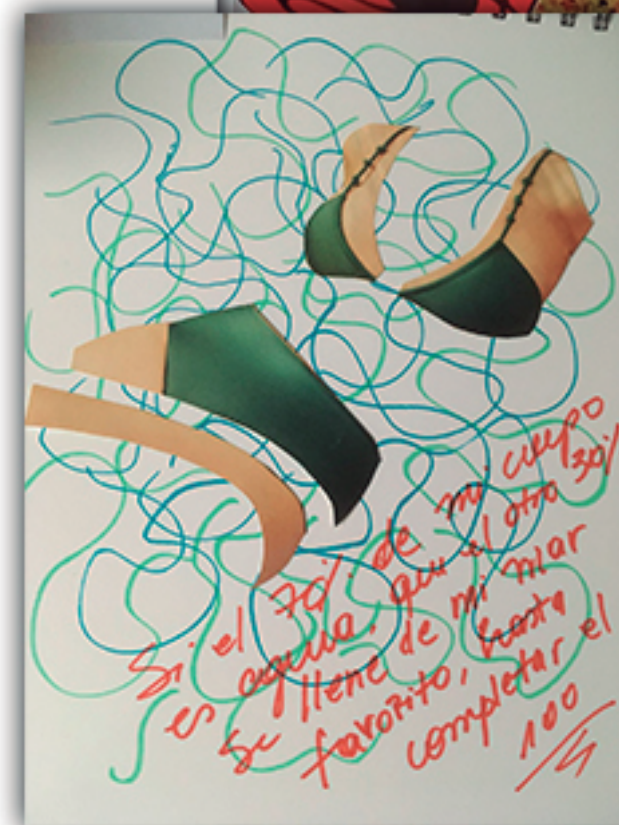 Si el 70% de mi cuerpo
es agua, que el otro 30%
se llene de mi mar
favorito, hasta
completar el
100